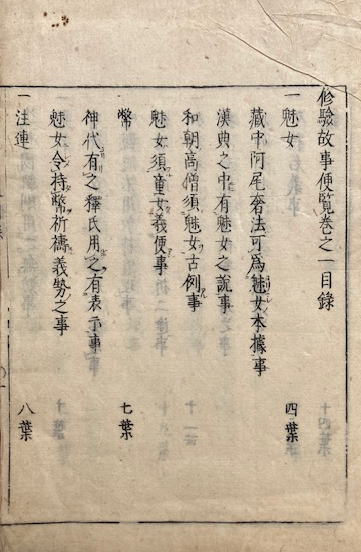 修驗故事便覧巻之一目録
一 魅女 四葉
藏中阿尾奢法可為魅女本據事
漢典之中有魅女之説事
和朝高僧須魅女古例事
魅女須童女義便事
幣 七葉
神代有之釋氏用之有表示事
魅女令持幣祈禱義勢之事
一 注連 八葉